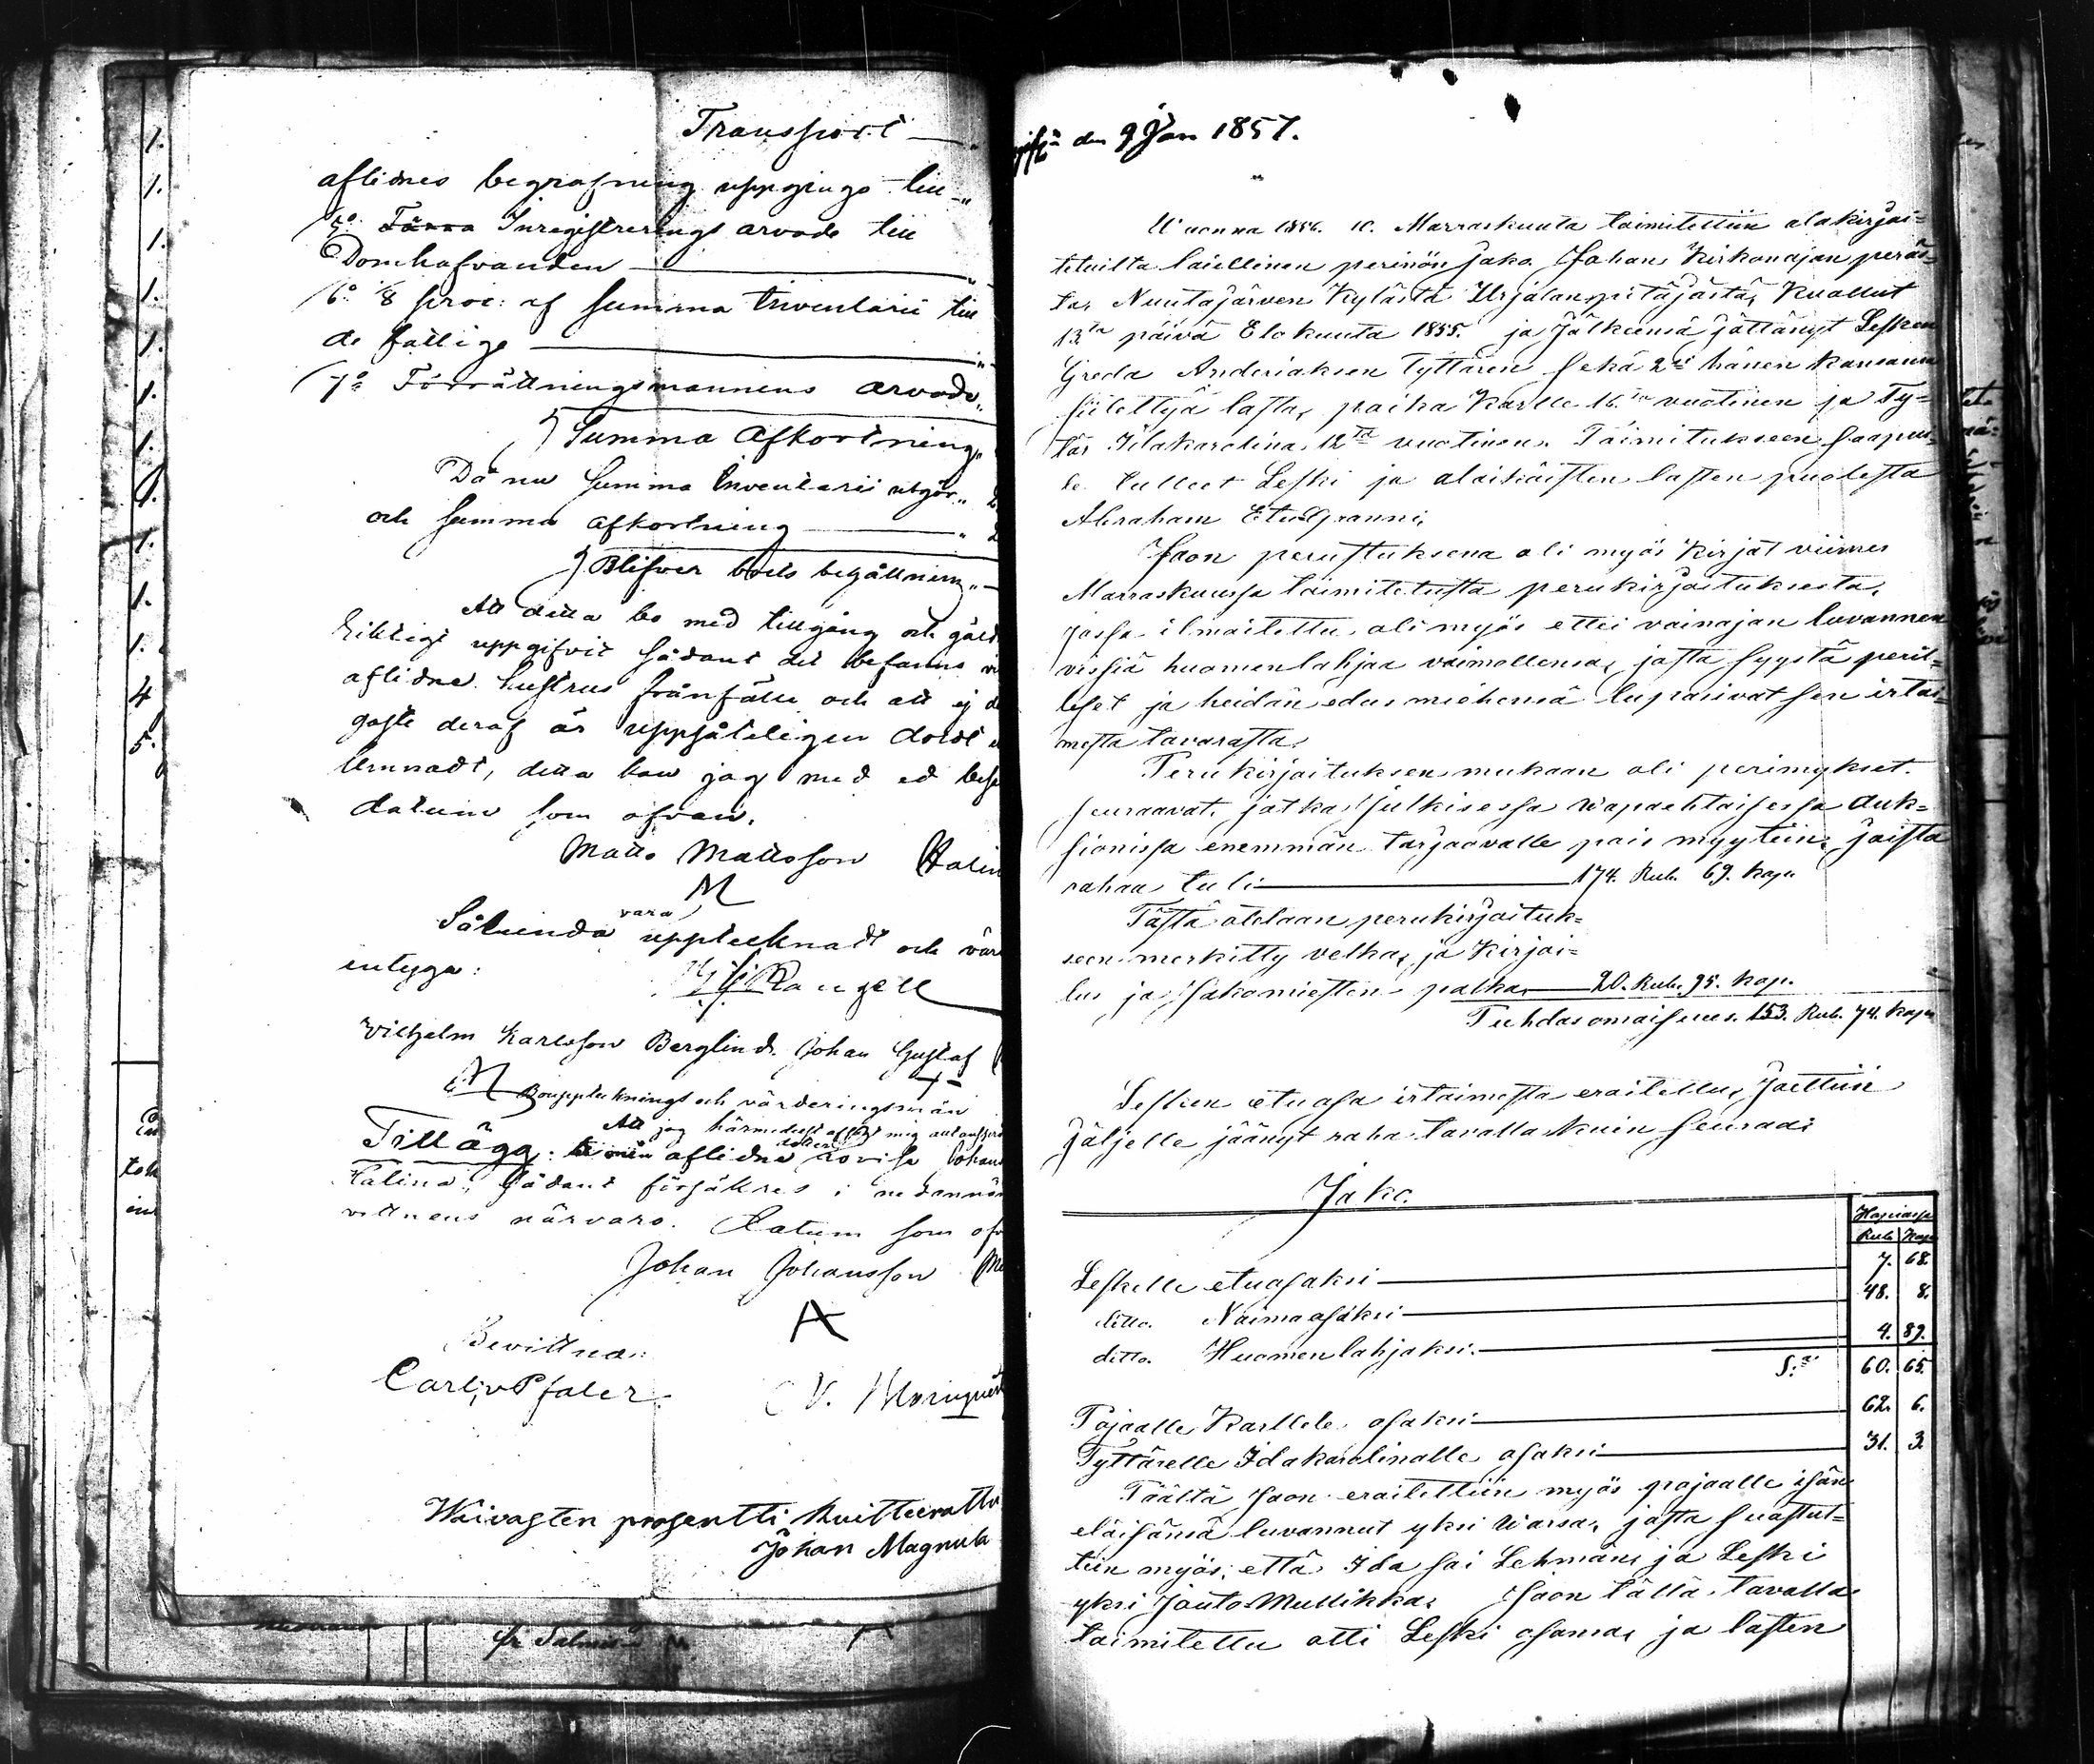 Transport
aflidnes begrafning uppgings till
5o Inregistrerings arvode till
Domhafvanden
6o 1/8 proc: af Summa Inventarii till
de fattige
7o Förrättningsmannens arvode
Summa Afkortning
Då nu Summa Inventarii utgör
och Summa afkortning
Blifver boets behållning
Att detta bo med tillgång och gäld
riktigt uppgifvit sådant det befanns vi
aflidne hustrus frånfälle och att ej d
gaste deraf är uppsåteligen doldt e
lemnadt, detta kan jag med ed
datum som ofvan.
Matts Mattsson Halin
M
Sålunda vara upptecknadt och vär
intyga:
Rangell
Vilhelm Karlsson Berglind. Johan Gustaf
Bouppteknings och värderingsmän
Att jag härmedelst mig
Tillägg: aflidne dotter Lovisa Johans
Halina, sådant försäkras i nedannäm
vittnens närvaro. Datum som of
Johan Johansson
A
Bevittna:
Carl v Pfaler.
Waivasten prosentti kvitteerattu
Johan Magnula
den 9 Jan 1857.
Wuonna 1856. 10. Marraskuuta toimitettiin alakirjoi=
tetuilta laillinen perinön Jako Johan Kirkonajan peräs=
tä, Nuutajärven Kylästä Urjalan pitäjästä, Kuollut
13ta päivä Elokuuta 1855. ja Jälkeensä jättänyt Lesken
Greda Anderiaksen Tyttären sekä 2si hänen Kansansa
siitettyä lasta, poika Karlle 16.ta vuotinen ja Ty=
tär Idakarolina 12ta vuotinen. Toimitukseen saapui=
le tulleet Leski ja alaikäisten lasten puolesta
Abraham EtuGranni,
Jaon perustuksena oli myös Kirjat viimes
Marraskuussa toimitetusta perukirjoituksesta,
jossa ilmoitettu oli myös ettei vainajan luvannen
vissiä huomenlahjaa vaimollensa, josta syystä peril=
liset ja heidän edusmiehensä lupasivat sen irtai=
mesta tavarasta.
Perukirjoituksen mukaan oli perimykset
seuraavat, jotka julkisessa wapaehtoisessa Auk=
sionissa enemmän tarjoovalle pois myytiin, joista
rahaa tuli 174. Rub. 69. kop.
Tästä otetaan perukirjoituk=
seen merkitty velka, ja Kirjoi=
tus ja Jakomiesten palka, 20. Rub. 95. kop.
Puhdas omaisuus. 153. Rub. 74. kop.
Lesken etuosa irtaimesta eroitettu, Jaettiin
Jäljelle jäänyt raha tavalla Kuin seuraa:
Jako.
Hopiassa
Rub. Kop.
Leskelle etuosaksi 7. 68.
ditto. Naimaosaksi 48. 8.
ditto. Huomenlahjaksi. 4. 89.
S:a 60. 65.
Pojaalle Karllele osaksi 62. 6.
Tyttärelle Idakarolinalle osaksi 31. 3.
Täältä Jaon eroitettiin myös pojaalle isän
eläisänsä luvannut yksi Warsa, josta suostut=
tiin myös; että Ida sai Lehmän, ja Leski
yksi Jouto Mullikka, Jaon tällä tavalla
toimitettu otti Leski osansa, ja lasten